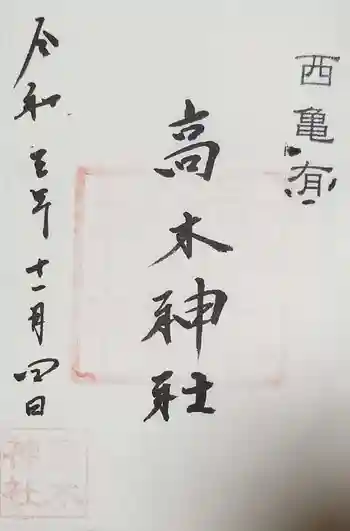 西亀有
高木神社
令和三年十一月四日